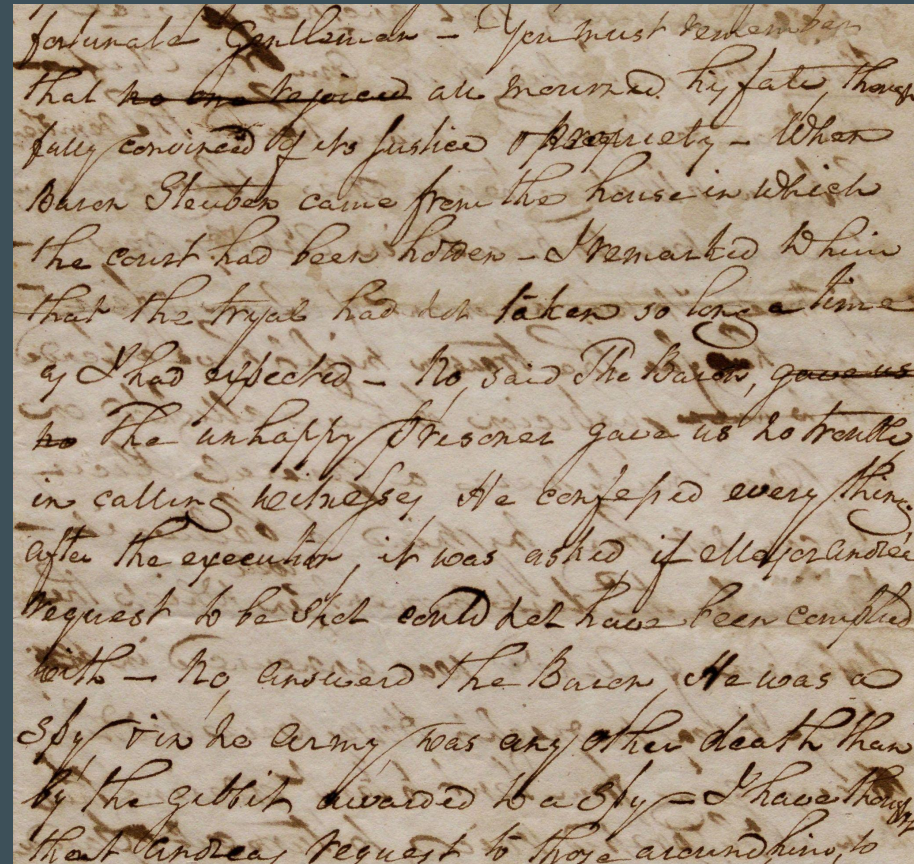 fortunate Gentleman - You must remember
that no one rejoiced all mourned his fate, though
fully convinced of its Justice & Propriety - When
Baron Steuben came from the house in which
the court had been holden - I remarked to him
that the tryal had not taken so long a time
as I had expected - No, said The Baron, gave us
no The unhappy Prisoner gave us no trouble,
in calling witnesses He confessed every thing
after the execution, it was asked if Major Andre's
request to be shot could not have been complied
with - No, answered the Baron, He was a
Spy & in no army was any other death than
by the gibbit, awarded to a Spy - I have thought
that Andreas request to those around him to